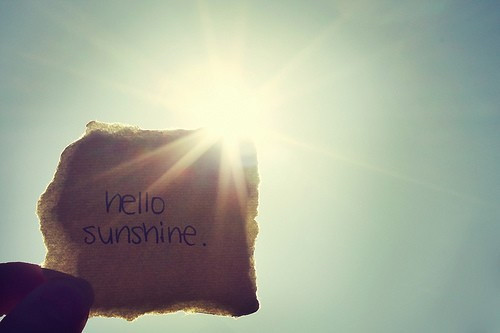 hello
sunshine.